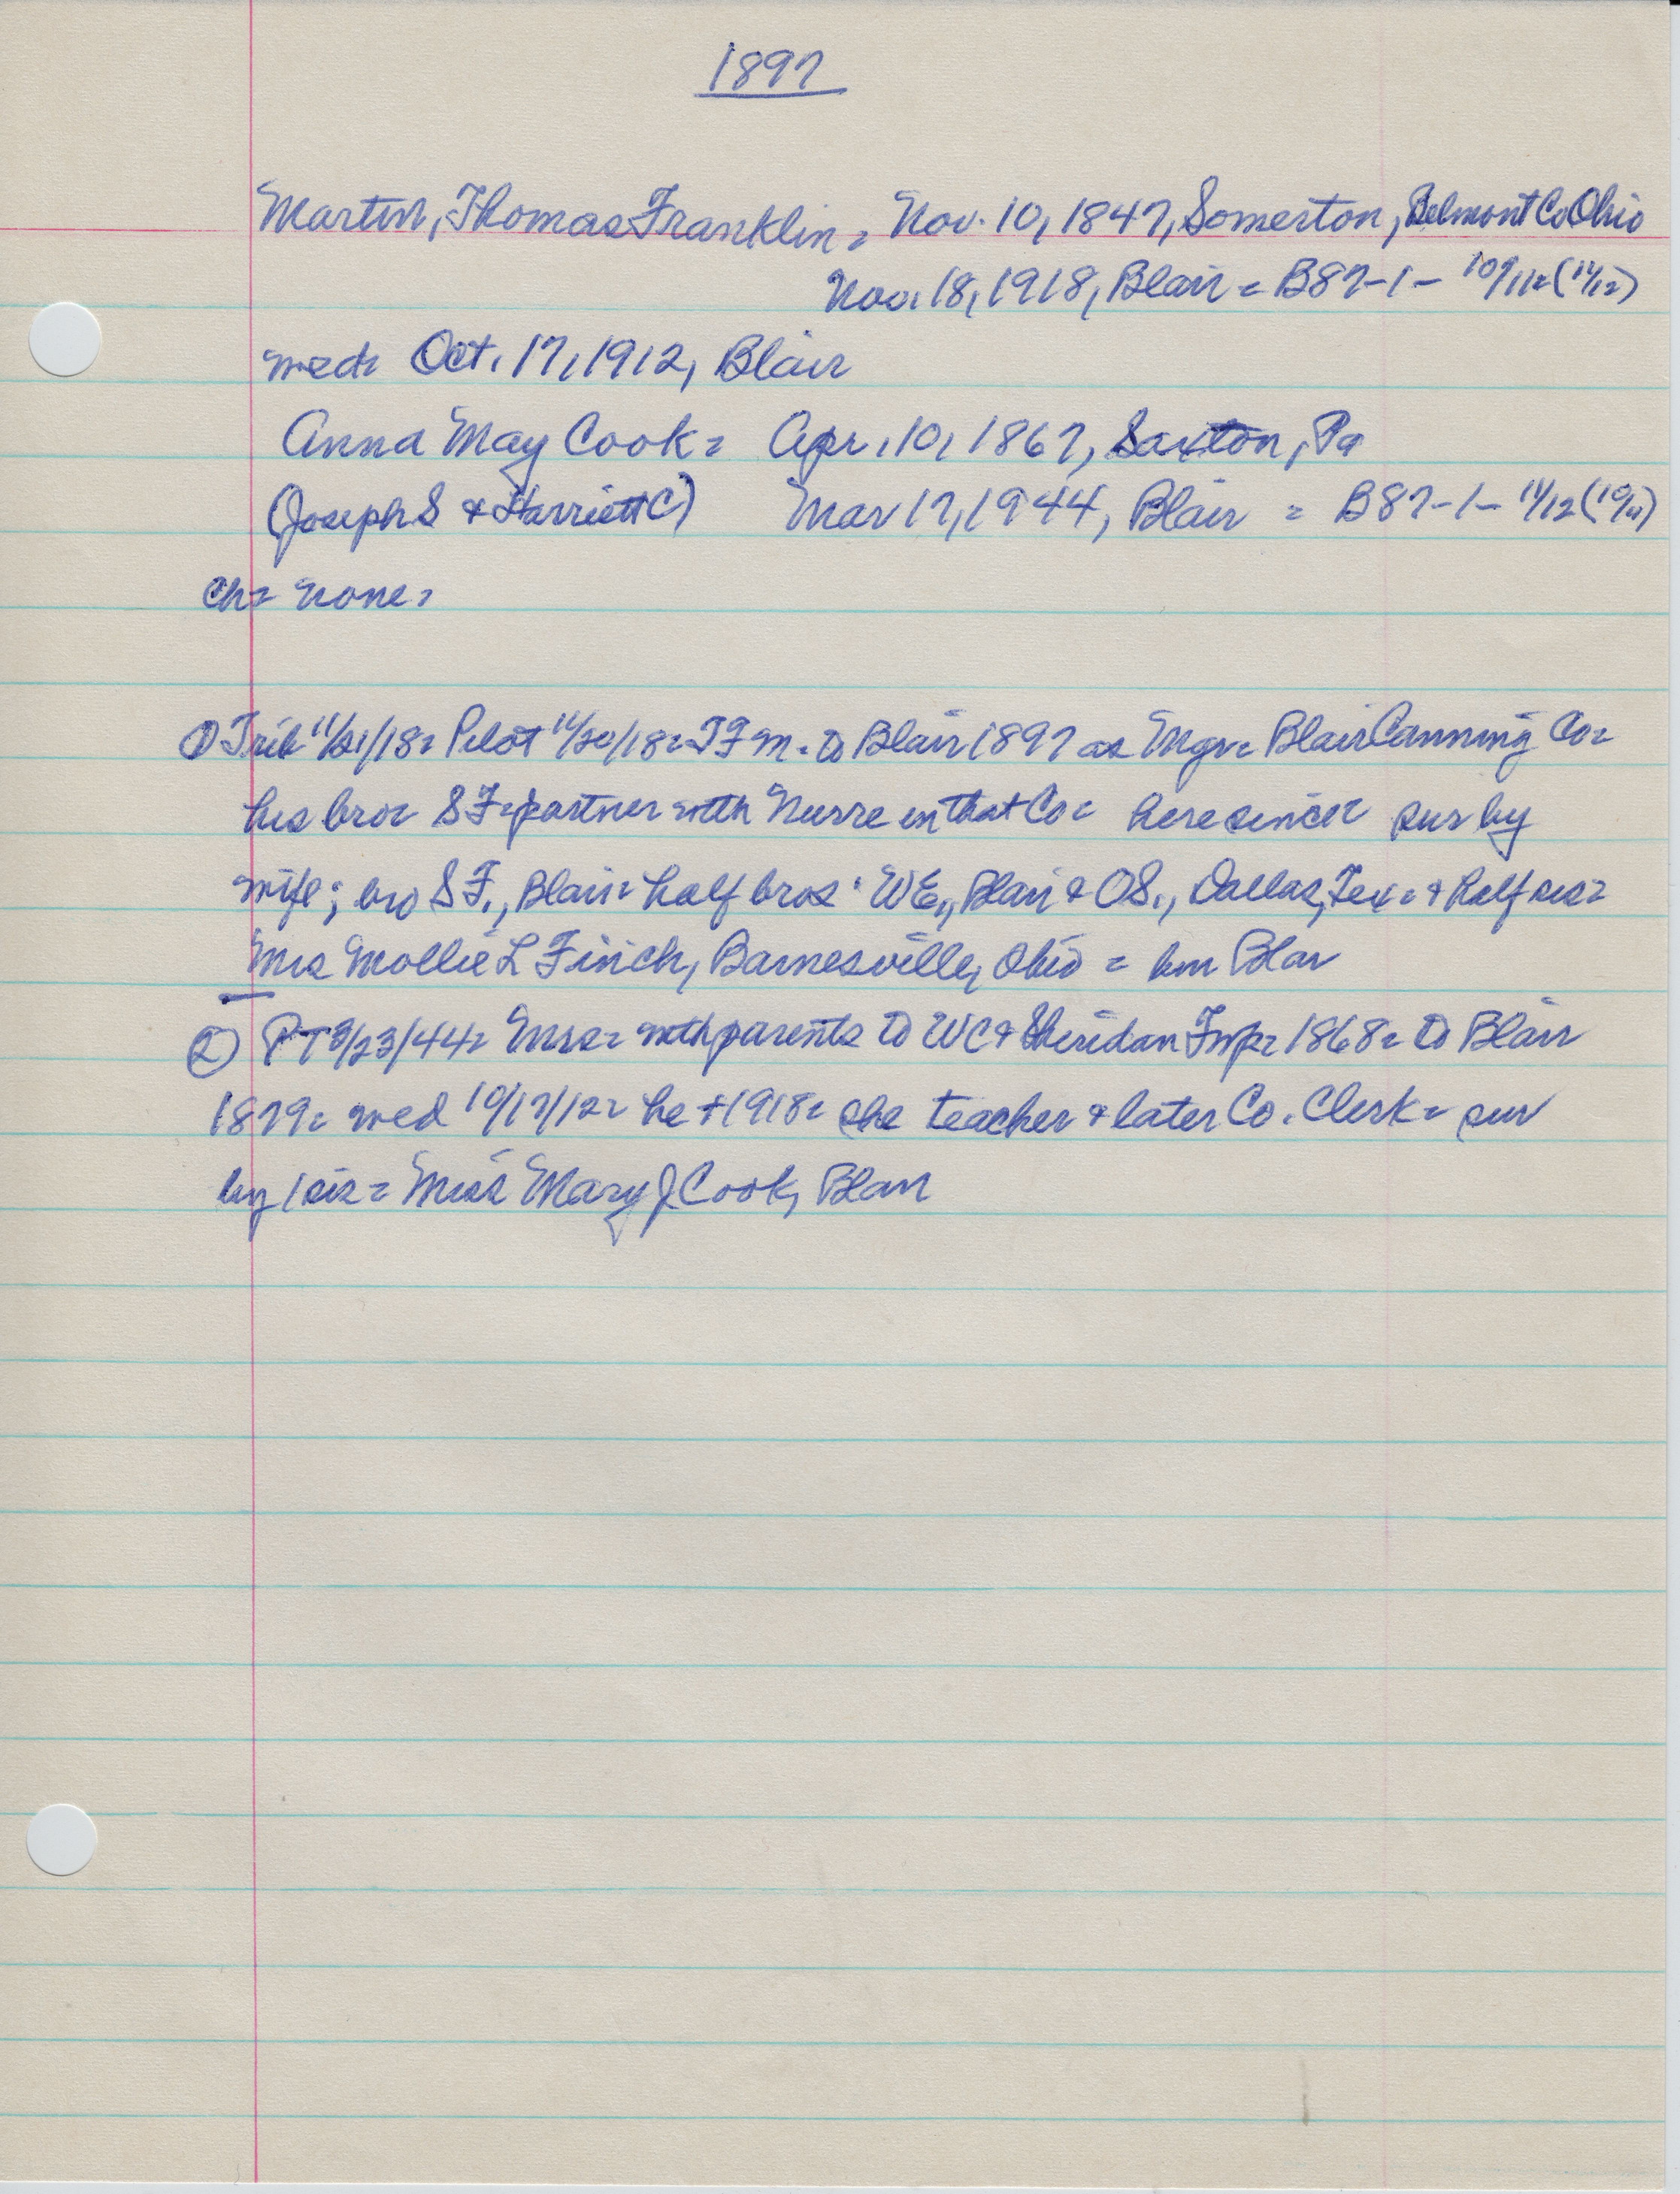 1897
Martin, Thomas Franklin = Nov. 10, 1847, Somerton, Belmont Co Ohio
Nov. 18, 1918, Blair = B87-1- 10/11/12 (11/12)
wed = Oct. 17, 1912, Blair
Anna May Cook = Apr. 10, 1867, Saxton, Pa
(Joseph S + Harriett C) Mar 17, 1944, Blair = B87-1- 11/12 (10/11)
ch = none =
① Trib 11/21/18 = Pilot 11/20/18 = TFM. to Blair 1897 as Mgr = Blair Canning Co =
his bro = SF = partner with Nurre in that Co = here since = sur by
wife; bro S F., Blair = half bros: WE., Blair + OS., Dallas, Tex = + half sis =
Mrs Mollie L Finch, Barnesville, Ohio = bur Blair
② PT 3/23/44 = Mrs = with parents to WC + Sheridan Twp = 1868 = to Blair
1879 = wed 10/17/12 = he + 1918 = she teacher + later Co. Clerk = sur
by 1 sis = Miss Mary J Cook, Blair